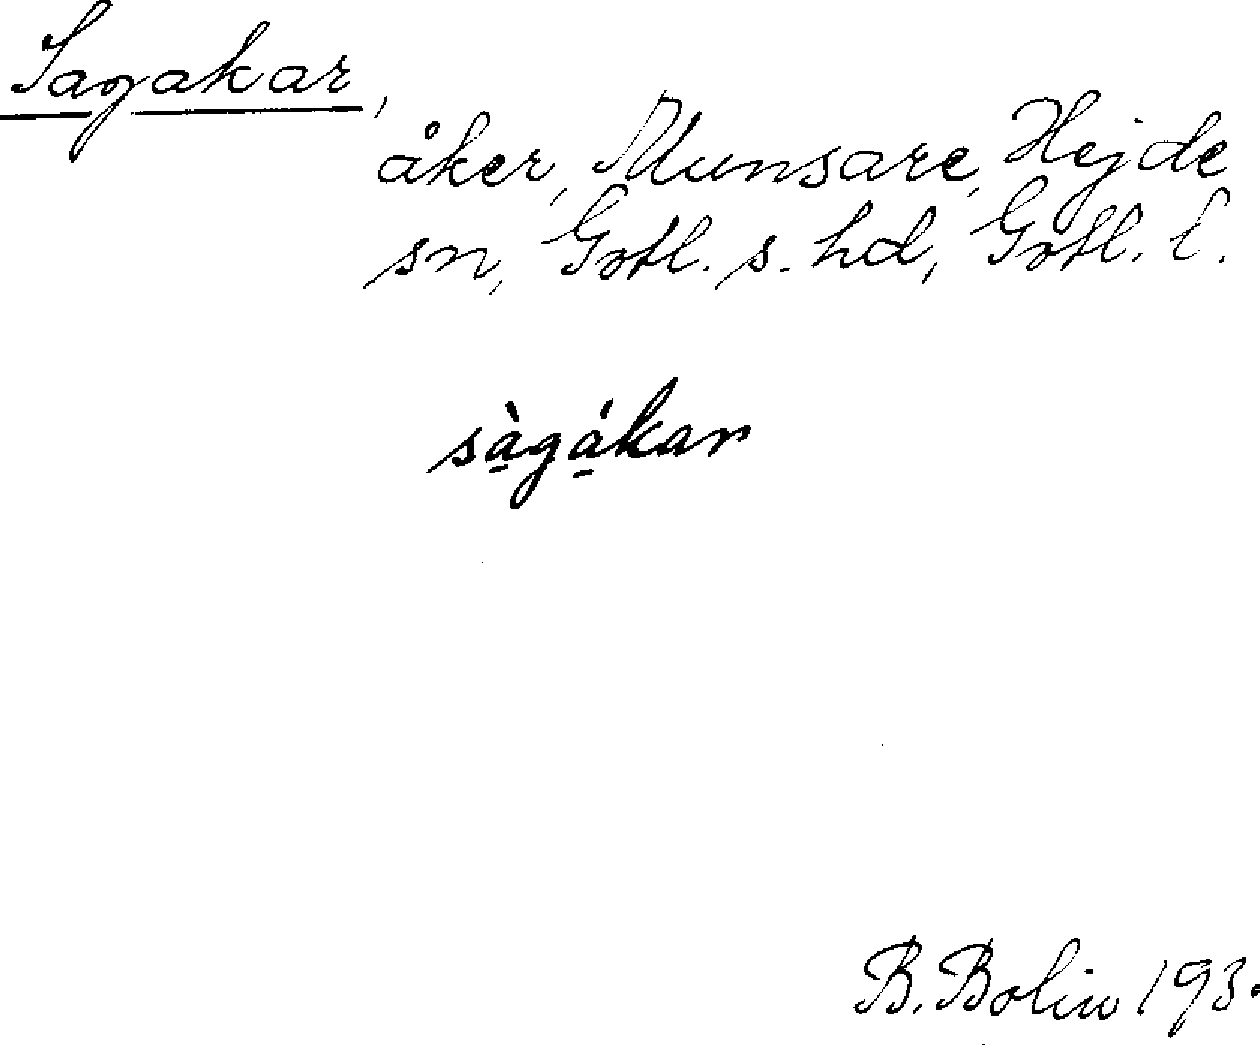 Sagakar,
åker, Munsare, Hejde
sn, Gotl. s. hd, Gotl. l.
sà̱gá̱kar
B. Bolin 193